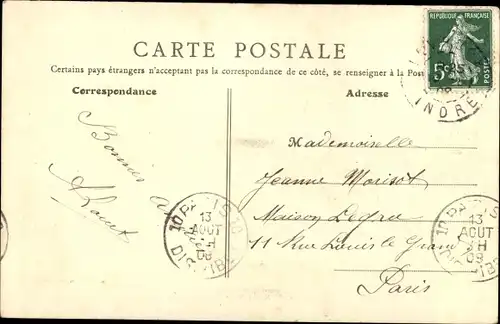 CARTE POSTALE
Certains pays étrangers n'acceptant pas la correspondance de ce côté, se renseigner à la Post
Correspondance
Adresse
RÉPUBLIQUE FRANÇAISE
5c
POSTES
INDRE
Bonnes
Mademoiselle
Jeanne Morisot
Maison
11 Rue Louis le Grand
Paris
10 PARIS 10
13
AOUT
H
09
DISTRIB
10 PARIS
13
AOUT
3H
09
DISTRIB